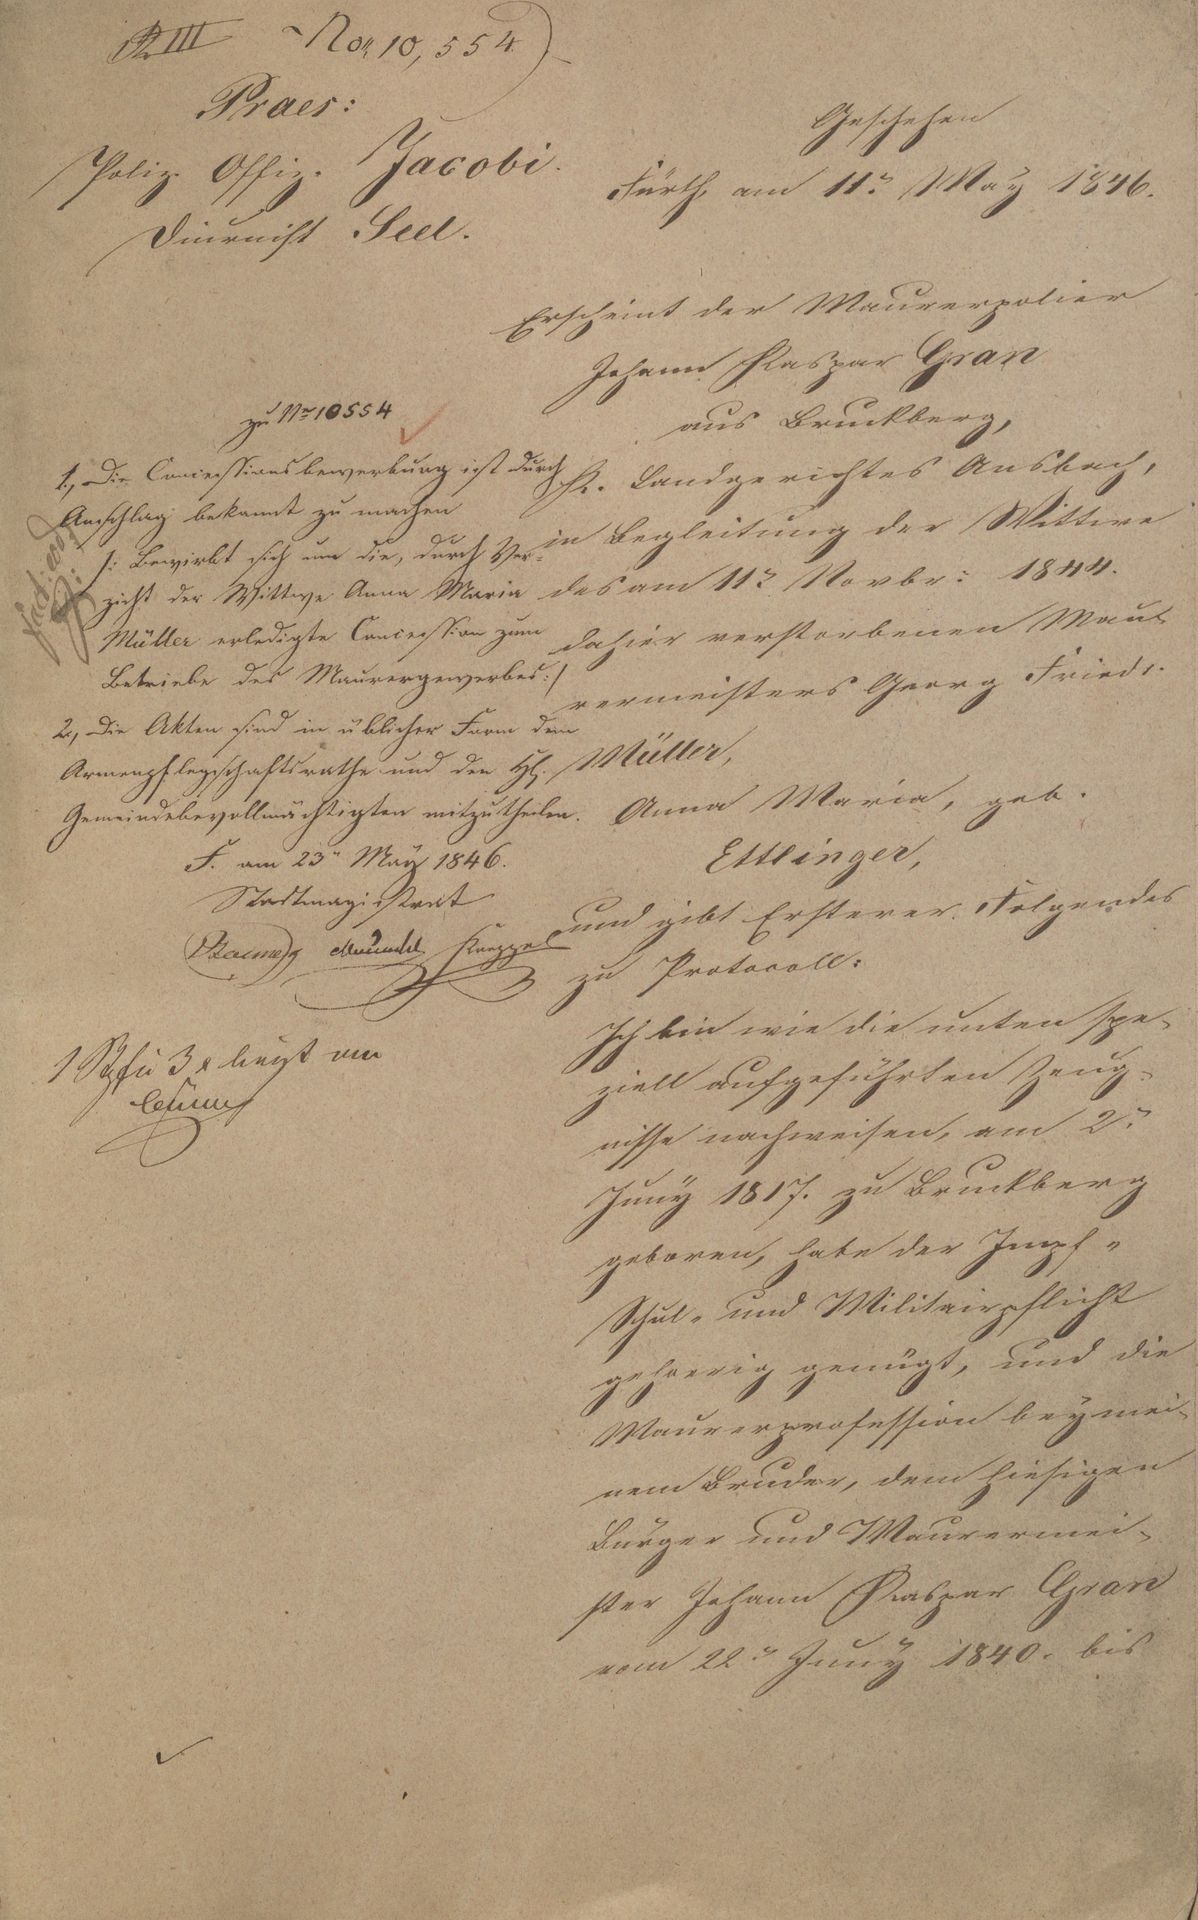 RIII No. 10,554
Praes:
Poliz. Offiz. Jacobi.
Diurnist Seel.
Geschehen
Fürth, am 11n May 1846.
Erscheint der Maurerpolier
Johann Kaspar Gran
aus Bruckberg,
K. Landgerichtes Ansbach,
in Begleitung der Wittwe
des am 11n Novbr: 1844.
dahier verstorbenen Maur
rermeisters Georg Friedr.
Müller,
Anna Maria, geb.
Ettlinger,
und gibt Ersterer Folgendes
zu Protocoll:
Ich bin wie die unten spe-
ziell aufgeführten Zeug-
nisse nachweisen, am 2n
Juny 1817. zu Bruckberg
geboren, habe der Impf-
Schul- und Militairpflicht
gehoerig genügt, und die
Maurerprofession bey mei-
nem Bruder, dem hiesigen
Bürger und Maurermei-
ster Johann Kaspar Gran
vom 22n Juny 1840. bis
zu Nro 10554
1., Die Concessionsbewerbung ist durch
Anschlag bekannt zu machen
/: Bewirbt sich um die, durch Ver-
zicht der Wittwe Anna Maria
Müller erledigte Concession zum
Betriebe des Maurergewerbes:/
2., Die Akten sind in üblicher Form dem
Armenpflegschaftsrathe und den H.
Gemeindebevollmächtigten mitzutheilen.
F. am 23n May 1846.
Stadtmagistrat
1 3 x liegt an